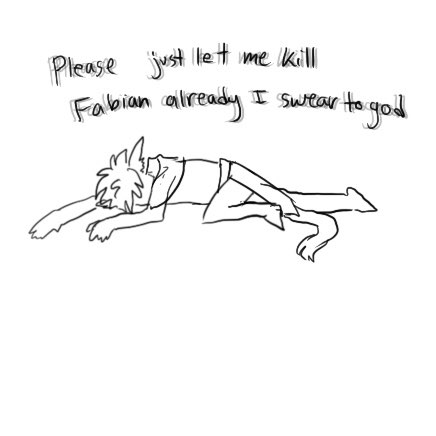 Please just let me kill
Fabian already I swear to god